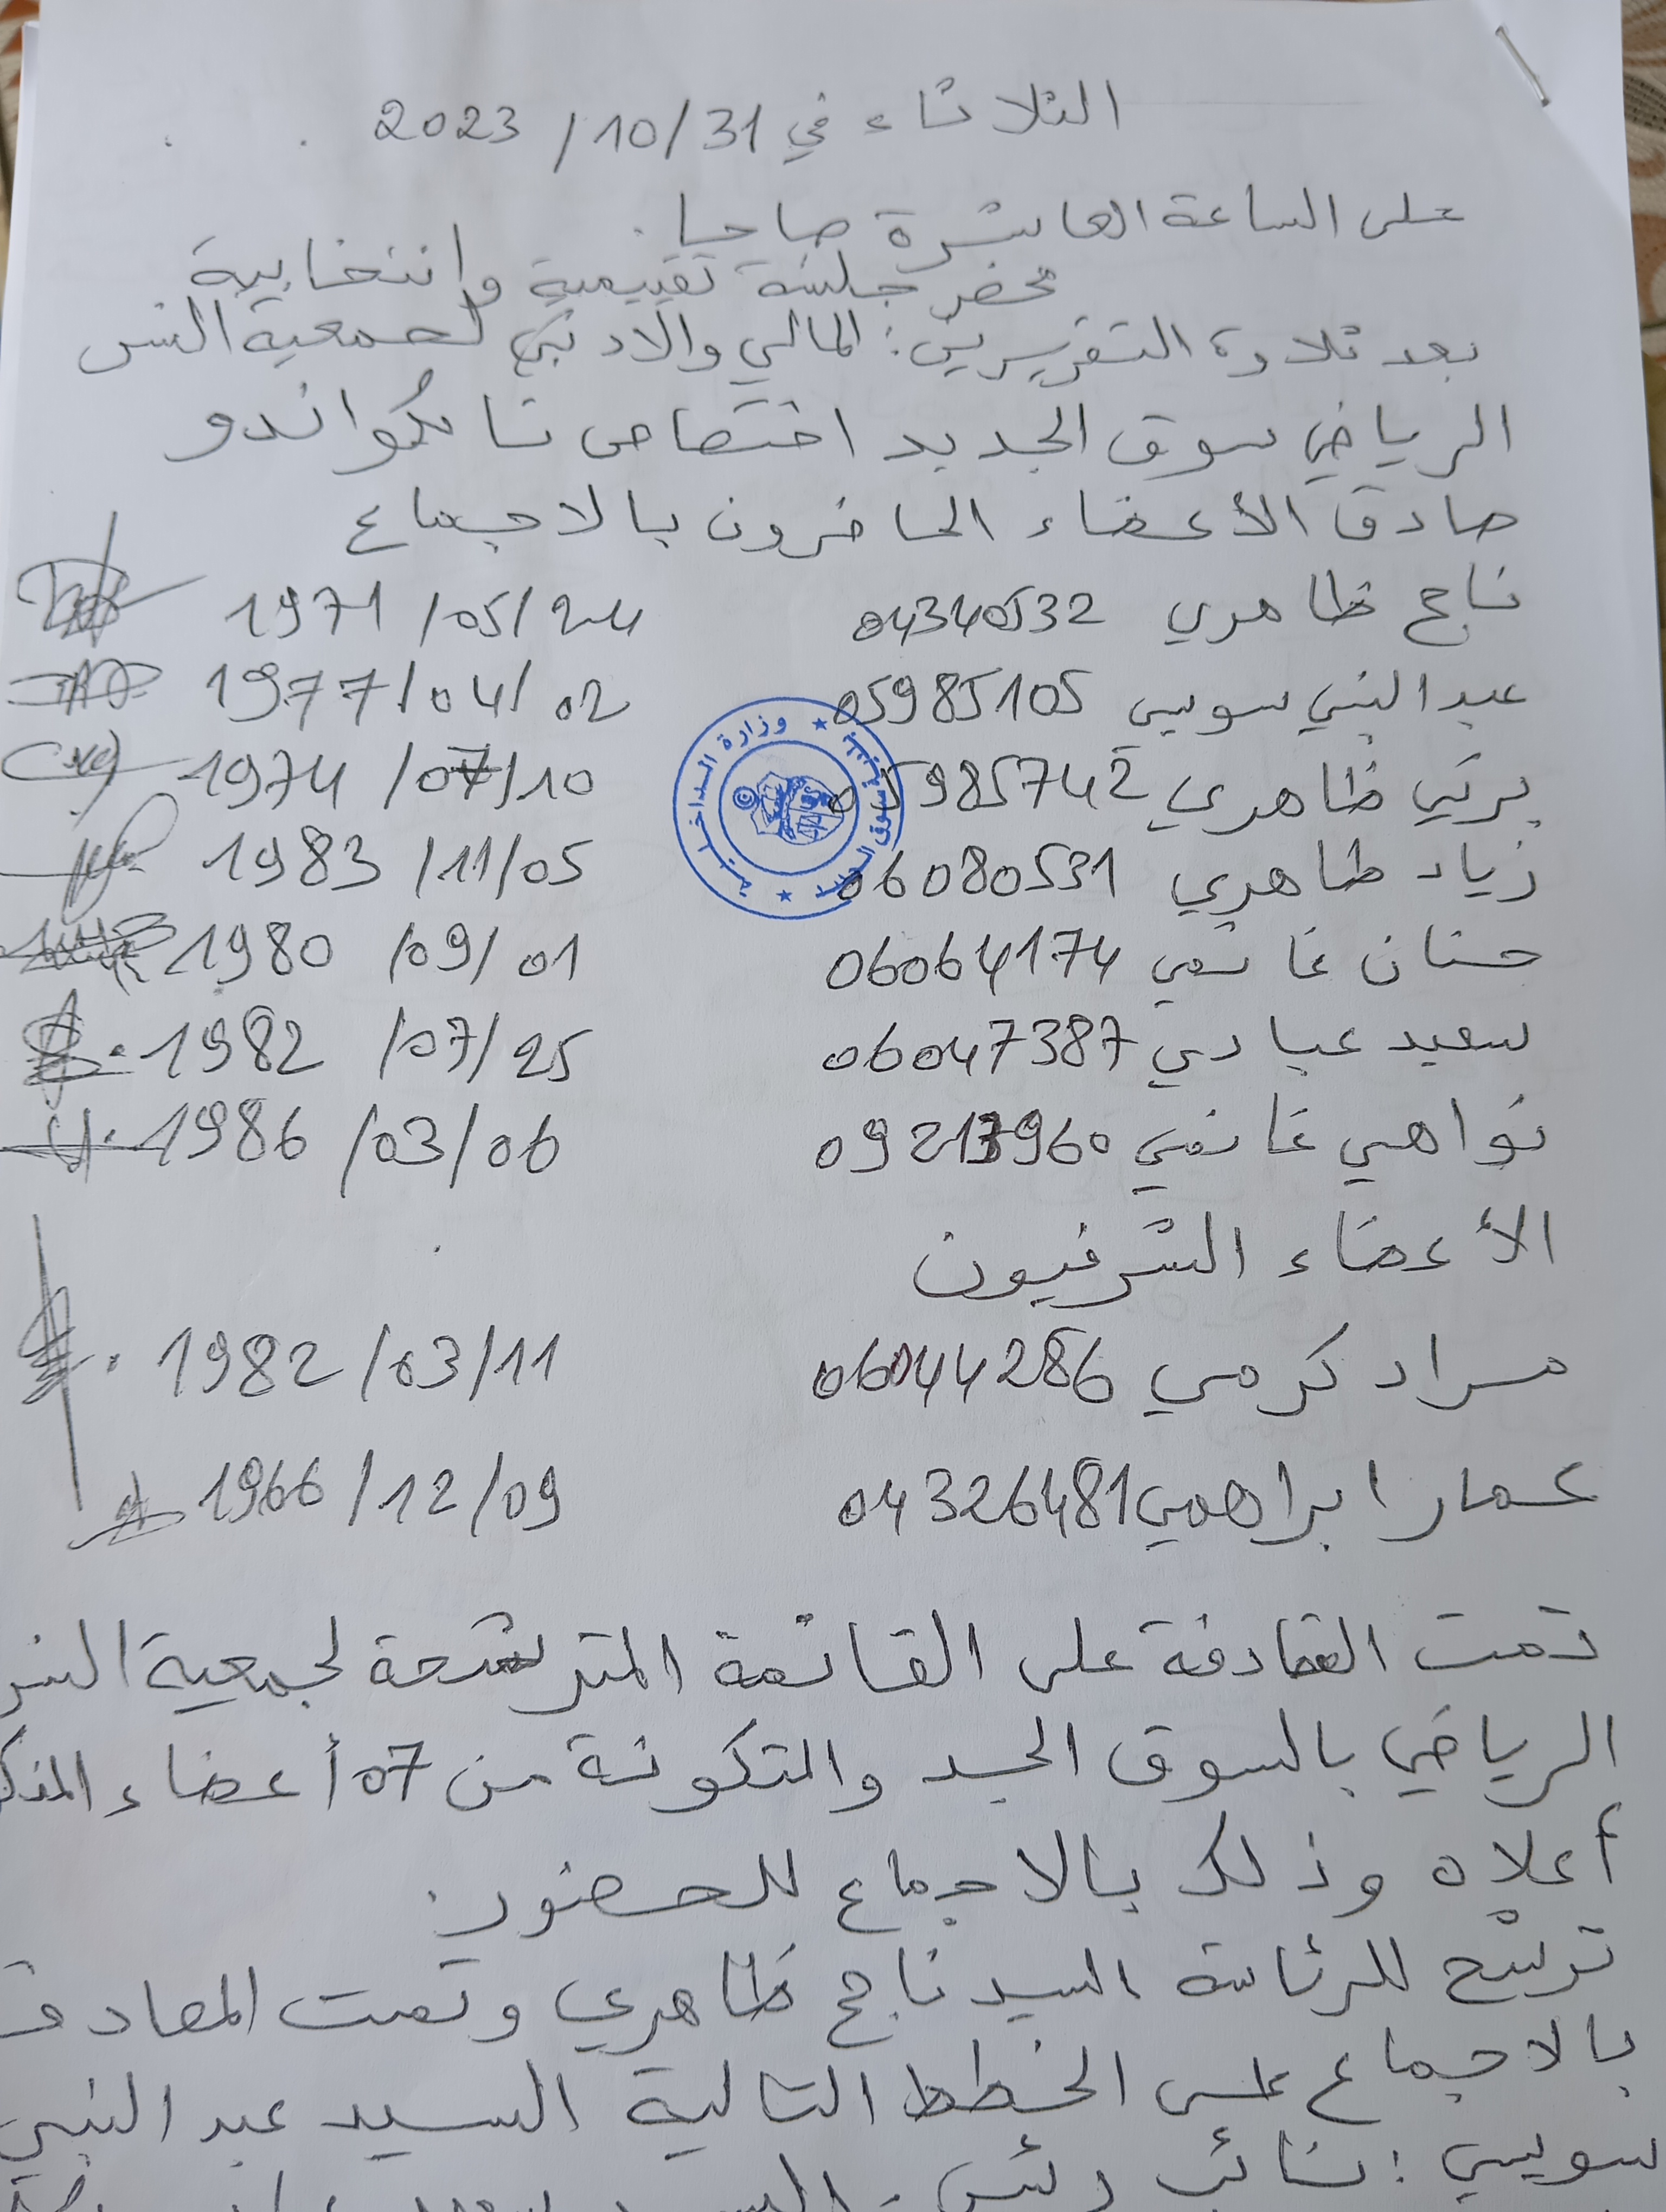 الثلاثاء في 31/10/2023
على الساعة العاشرة صباحا.
محضر جلسة تقييمية وانتخابية
بعد تلاوة التقريرين: المالي والأدبي لجمعية النسر
الرياضي سوق الجديد اختصاص تايكواندو
صادق الأعضاء الحاضرون بالاجماع
ناجح ظاهري 04340532 24/05/1971
عبد النبي سويسي 05985105 02/04/1977
ظاهري 05985742 10/07/1974
زياد ظاهري 06080531 05/11/1983
حنان غانمي 06064174 01/09/1980
سعيد عبادي 06047387 25/07/1982
نواهي غانمي 960 06/03/1986
الأعضاء الشرفيون
مراد كرمي 06044286 11/03/1982
عمار ابراهمي 04326481 09/12/1966
وزارة الداخلية
تمت المصادقة على القائمة المترشحة لجمعية النسر
الرياضي بالسوق الجديد والمتكونة من 07 أعضاء المذك
أعلاه وذلك بالاجماع للحضور.
ترشح للرئاسة السيد ناجح ظاهري وتمت المصادق
بالاجماع على الخطط التالية السيد عبد النبي
سويسي: نائب رئيس.